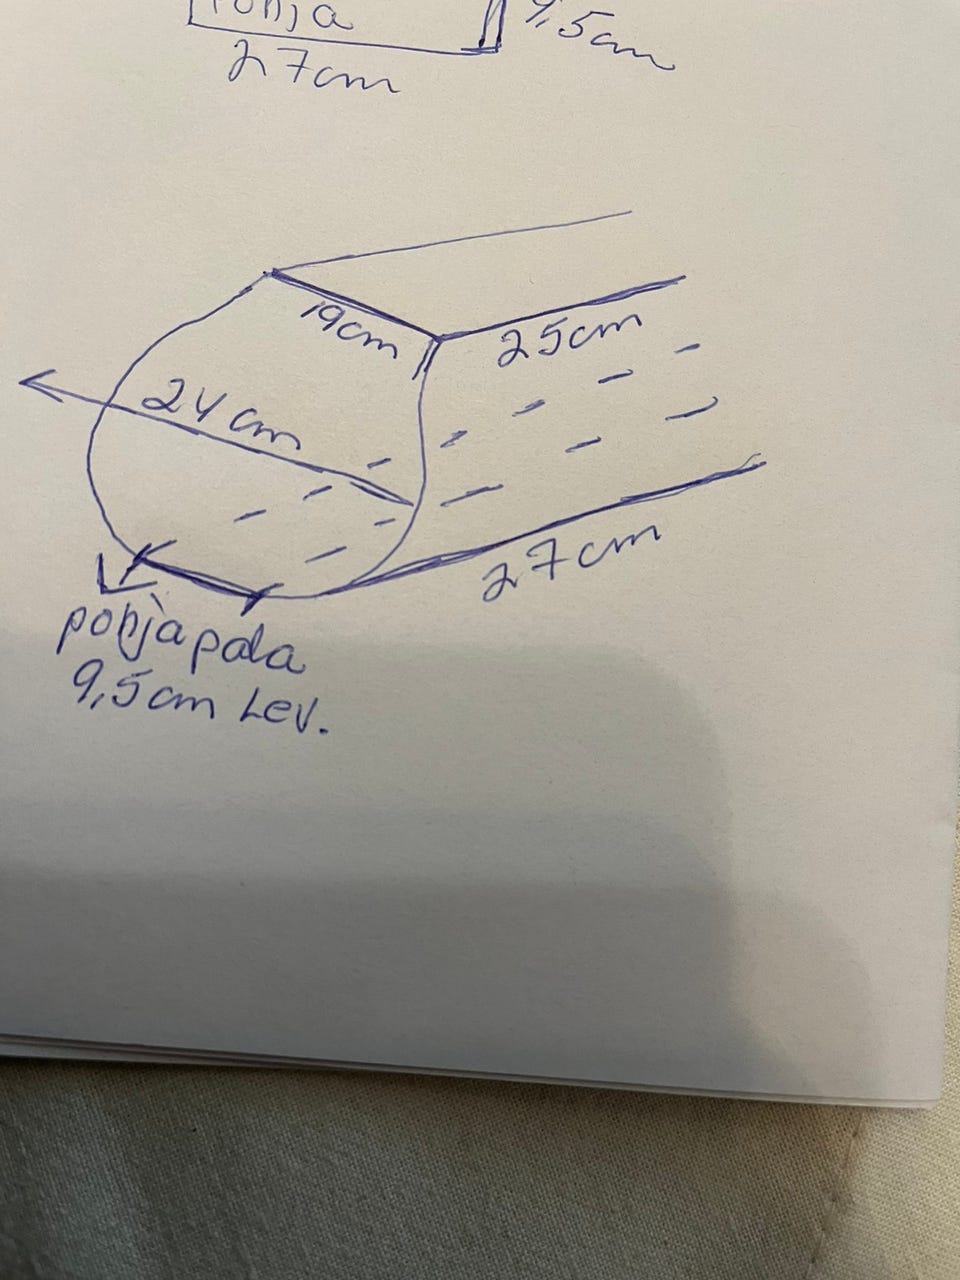 pohja
9,5cm
27cm
19cm
25cm
24cm
27cm
pohjapala
9,5cm Lev.